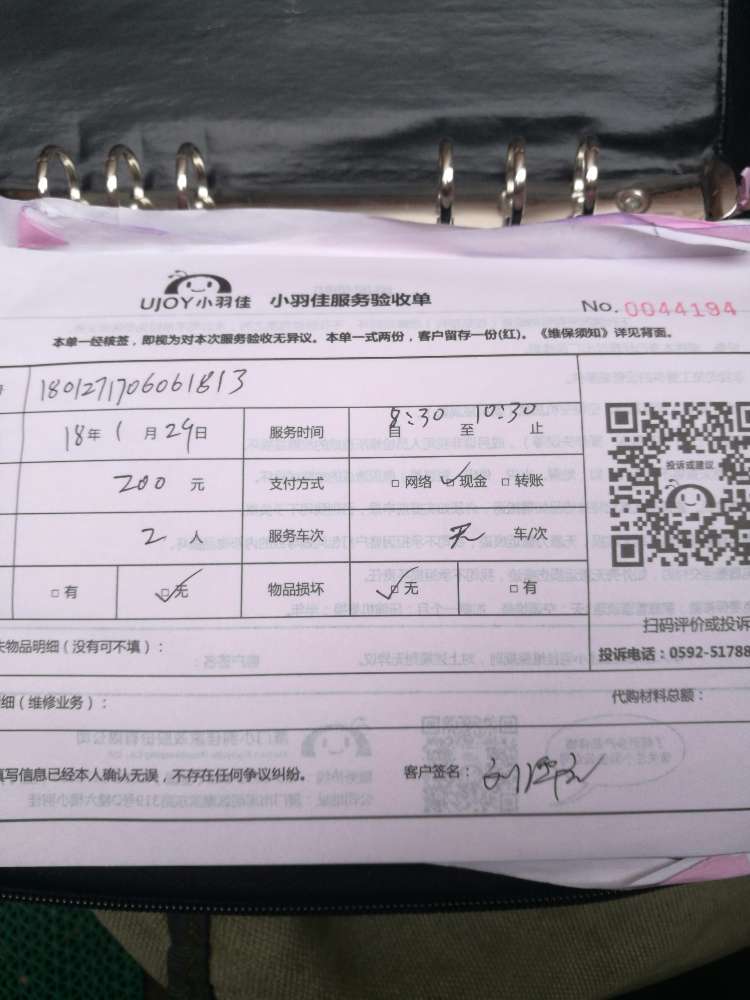 UJOY小羽佳 小羽佳服务验收单
No. 0044194
本单一经核签，即视为对本次服务验收无异议。本单一式两份，客户留存一份(红)。《维保须知》详见背面。
180127170606​1813
18年1月29日 服务时间 8:30 自 至 10:30 止
200 元 支付方式 □网络 ✓现金 □转账
2 人 服务车次 无 车/次
□有 ☑无 物品损坏 ☑无 □有
投诉或建议
扫码评价或投诉
物品明细（没有可不填）：
投诉电话：0592-51788
细（维修业务）：
代购材料总额：
写信息已经本人确认无误，不存在任何争议纠纷。 客户签名：